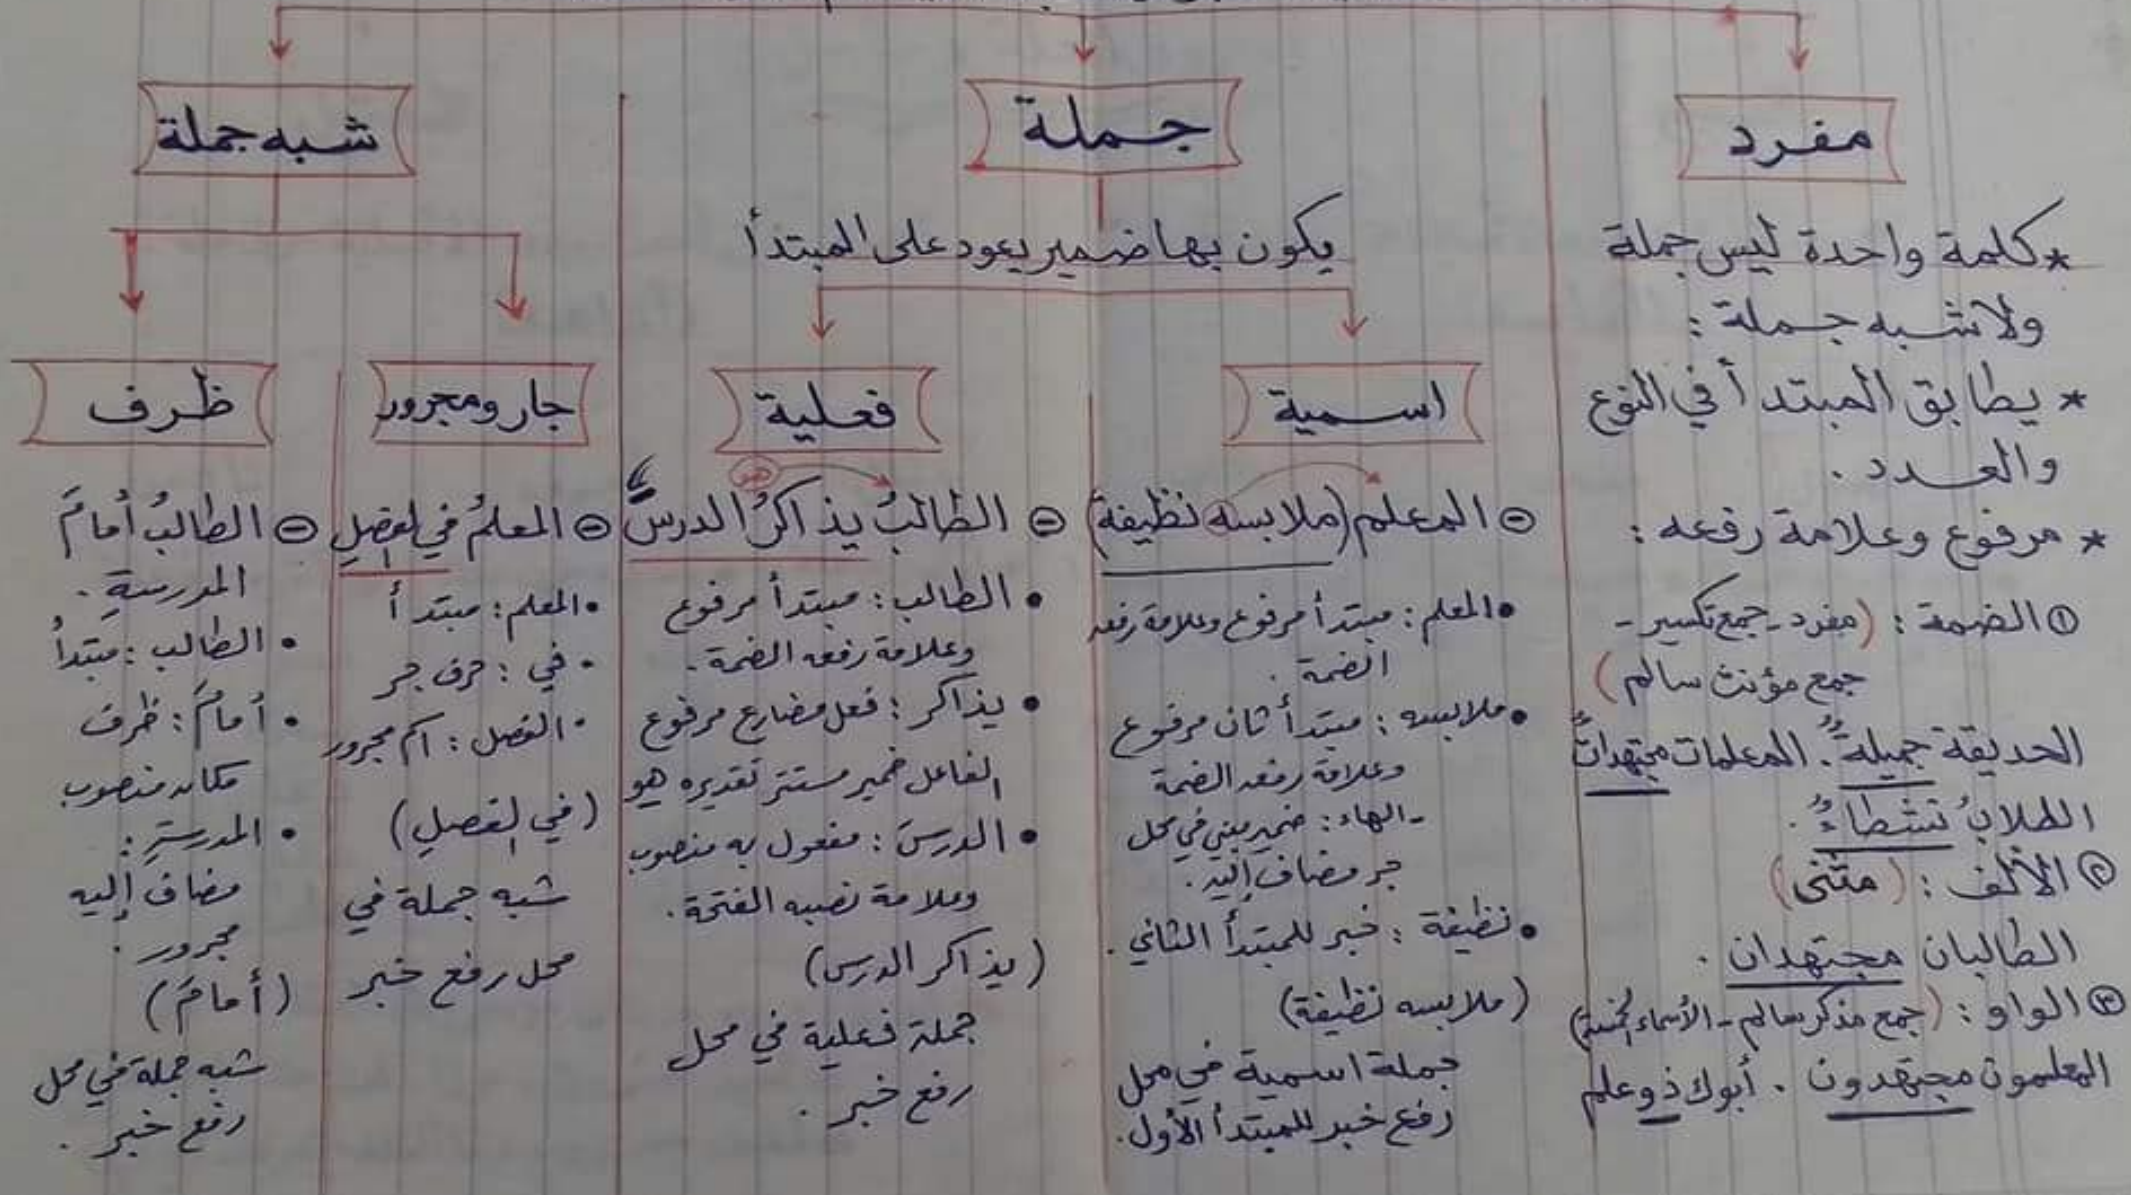 مفرد
*كلمة واحدة ليس جملة
ولا شبه جملة :
* يطابق المبتدأ في النوع
والعدد .
* مرفوع وعلامة رفعه :
① الضمة : (مفرد - جمع تكسير -
جمع مؤنث سالم)
الحديقة جميلةٌ . المعلمات مجتهداتٌ
الطلابُ نشطاءُ .
② الألف : (مثنى)
الطالبان مجتهدان .
③ الواو : (جمع مذكر سالم - الأسماء الخمسة)
المعلمون مجتهدون . أبوك ذو علم
جملة
يكون بها ضمير يعود على المبتدأ
اسمية
⊖ المعلم (ملابسه نظيفة)
• المعلم : مبتدأ مرفوع وعلامة رفعه
الضمة .
• ملابسه : مبتدأ ثان مرفوع
وعلامة رفعه الضمة
- الهاء : ضمير مبني في محل
جر مضاف إليه .
• نظيفة : خبر للمبتدأ الثاني .
(ملابسه نظيفة)
جملة اسمية في محل
رفع خبر للمبتدأ الأول .
فعلية
هو
⊖ الطالبُ يذاكرُ الدرسَ
• الطالب : مبتدأ مرفوع
وعلامة رفعه الضمة .
• يذاكر : فعل مضارع مرفوع
الفاعل ضمير مستتر تقديره هو
• الدرسَ : مفعول به منصوب
وعلامة نصبه الفتحة .
(يذاكر الدرس)
جملة فعلية في محل
رفع خبر .
شبه جملة
جار ومجرور
⊖ المعلمُ في الفصلِ
• المعلم : مبتدأ
• في : حرف جر
• الفصل : اسم مجرور
(في الفصلِ)
شبه جملة في
محل رفع خبر
ظرف
⊖ الطالبُ أمامَ
المدرسةِ .
• الطالب : مبتدأُ
• أمامَ : ظرف
مكان منصوب
• المدرسةِ :
مضاف إليه
مجرور .
(أمامَ)
شبه جملة في محل
رفع خبر .